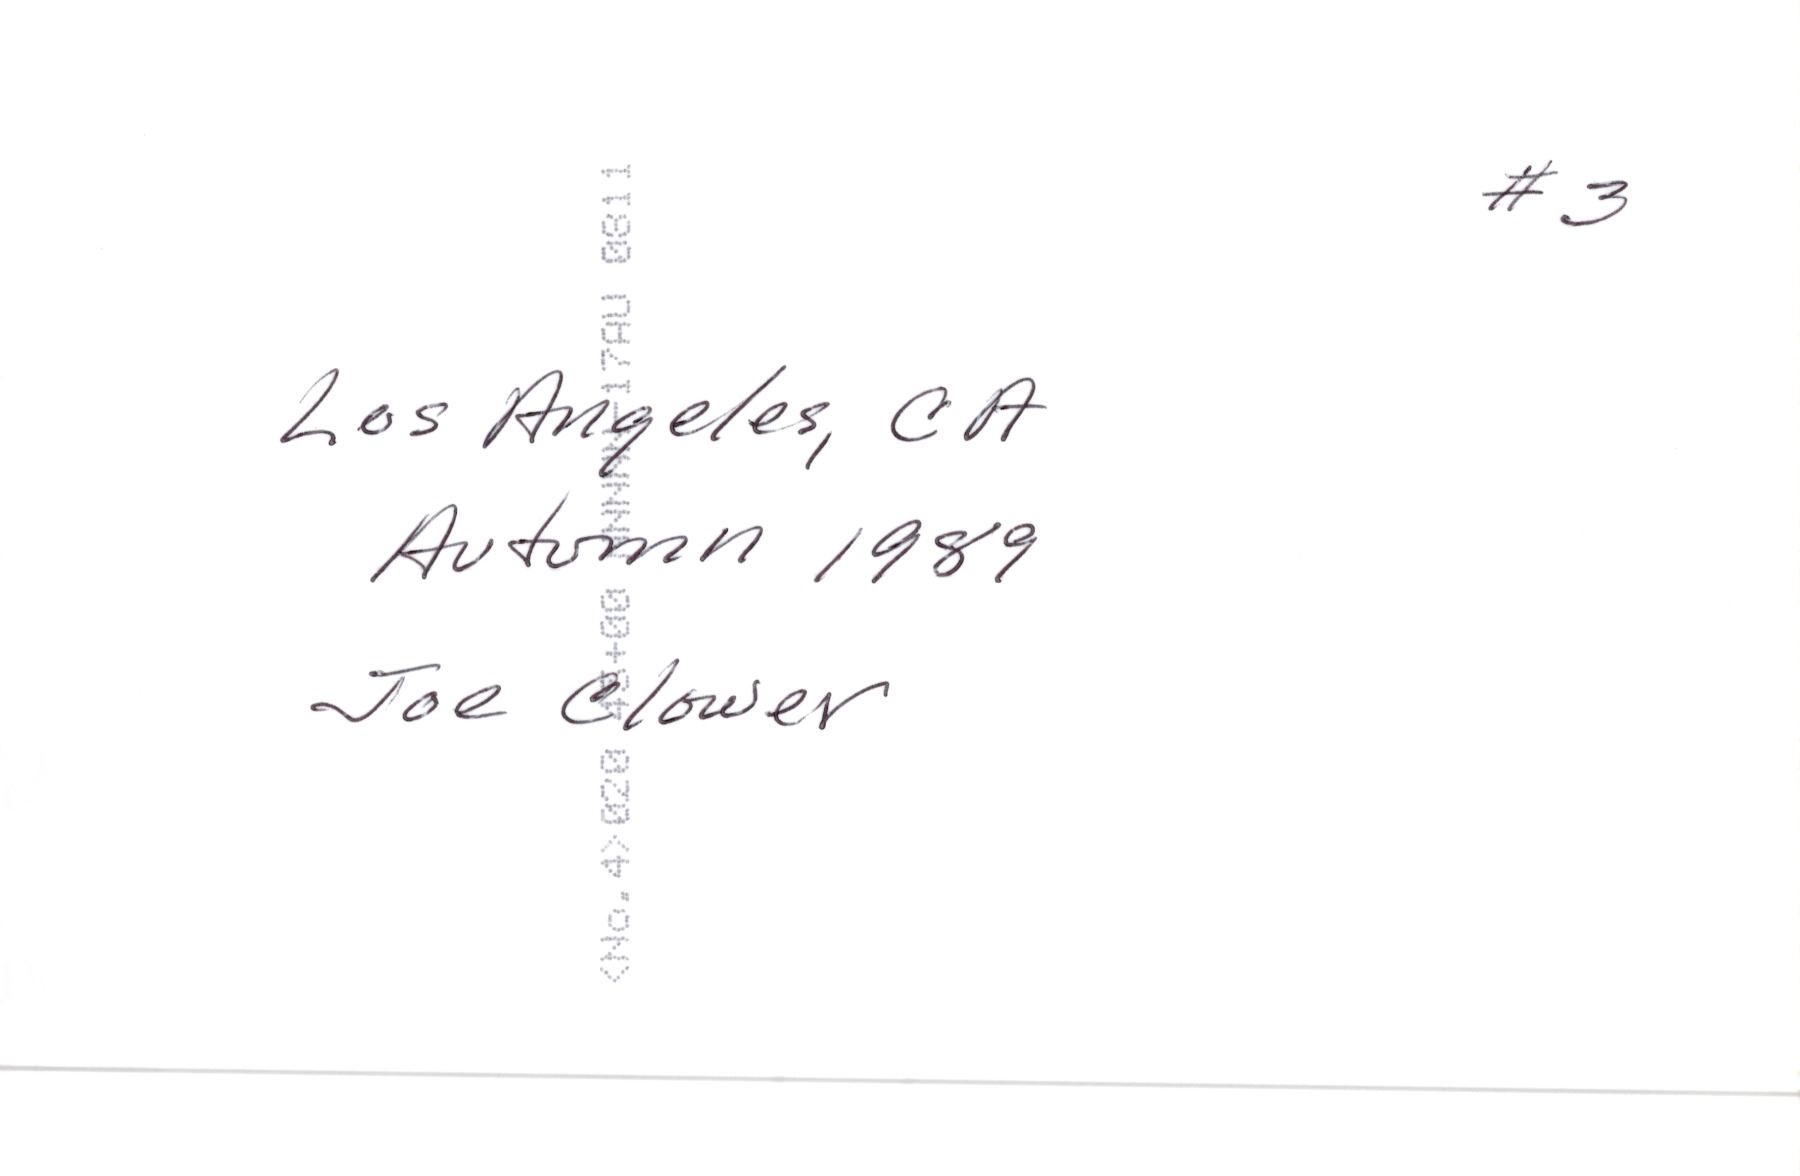 #3
Los Angeles, CA
Autumn 1989
Joe Clower
<No. 4> 020 45+00 NNNNN-17AU 0811